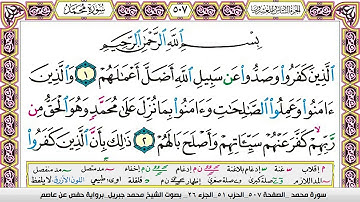 سورة محمد ٥٠٧ الجزء السادس والعشرون
بِسْمِ ٱللَّهِ ٱلرَّحْمَٰنِ ٱلرَّحِيمِ
ٱلَّذِينَ كَفَرُوا۟ وَصَدُّوا۟ عَن سَبِيلِ ٱللَّهِ أَضَلَّ أَعْمَٰلَهُمْ ١ وَٱلَّذِينَ
ءَامَنُوا۟ وَعَمِلُوا۟ ٱلصَّٰلِحَٰتِ وَءَامَنُوا۟ بِمَا نُزِّلَ عَلَىٰ مُحَمَّدٍ وَهُوَ ٱلْحَقُّ مِن
رَّبِّهِمْ كَفَّرَ عَنْهُمْ سَيِّـَٔاتِهِمْ وَأَصْلَحَ بَالَهُمْ ٢ ذَٰلِكَ بِأَنَّ ٱلَّذِينَ كَفَرُوا۟
سورة محمد _ الصفحة ٥٠٧ _ الحزب ٥١ _ الجزء ٢٦ _ بصوت الشيخ محمد جبريل _ برواية حفص عن عاصم